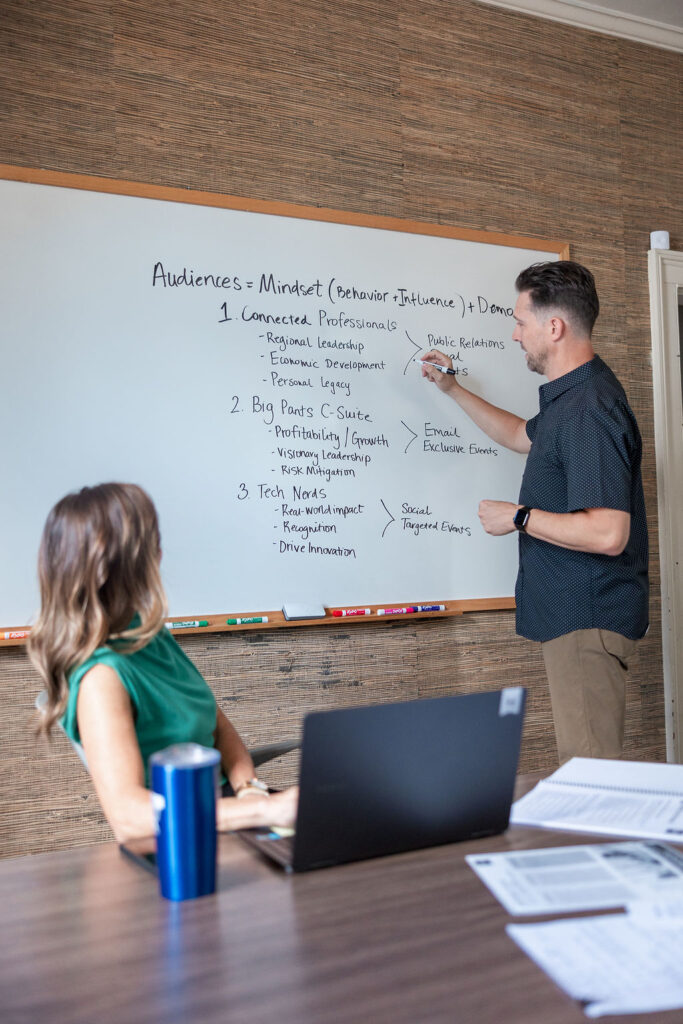 Audiences = Mindset (Behavior + Influence) + Demo
1. Connected Professionals
- Regional Leadership
- Economic Development
- Personal Legacy
Public Relations
2. Big Pants C-Suite
- Profitability / Growth
- Visionary Leadership
- Risk Mitigation
Email
Exclusive Events
3. Tech Nerds
- Real-world impact
- Recognition
- Drive Innovation
Social
Targeted Events